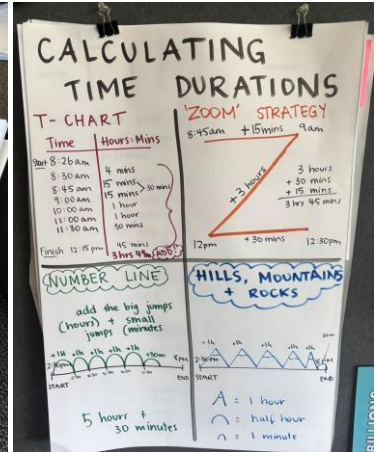 CALCULATING
TIME DURATIONS
T-CHART
Time Hours:Mins
Start 8:26am
8:30am 4 mins
8:45am 15 mins
9:00am 15 mins > 30 mins
10:00am 1 hour
11:00am 1 hour
11:30am 30 mins
Finish 12:15pm 45 mins
3 hrs 49m ADD
'ZOOM' STRATEGY
8:45am +15mins 9am
+3 hours
3 hours
+ 30 mins
+ 15 mins
3 hrs 45 mins
12pm +30 mins 12:30pm
NUMBER LINE
add the big jumps
(hours) + small
jumps (minutes
+1h +1h +1h +1h +1h +30m
2:30pm 8pm
START END
5 hours +
30 minutes
HILLS, MOUNTAINS
+ ROCKS
+1h +1h +1h +1h +1h
2:30pm
START END
= 1 hour
= half hour
= 1 minute
BILLIONS